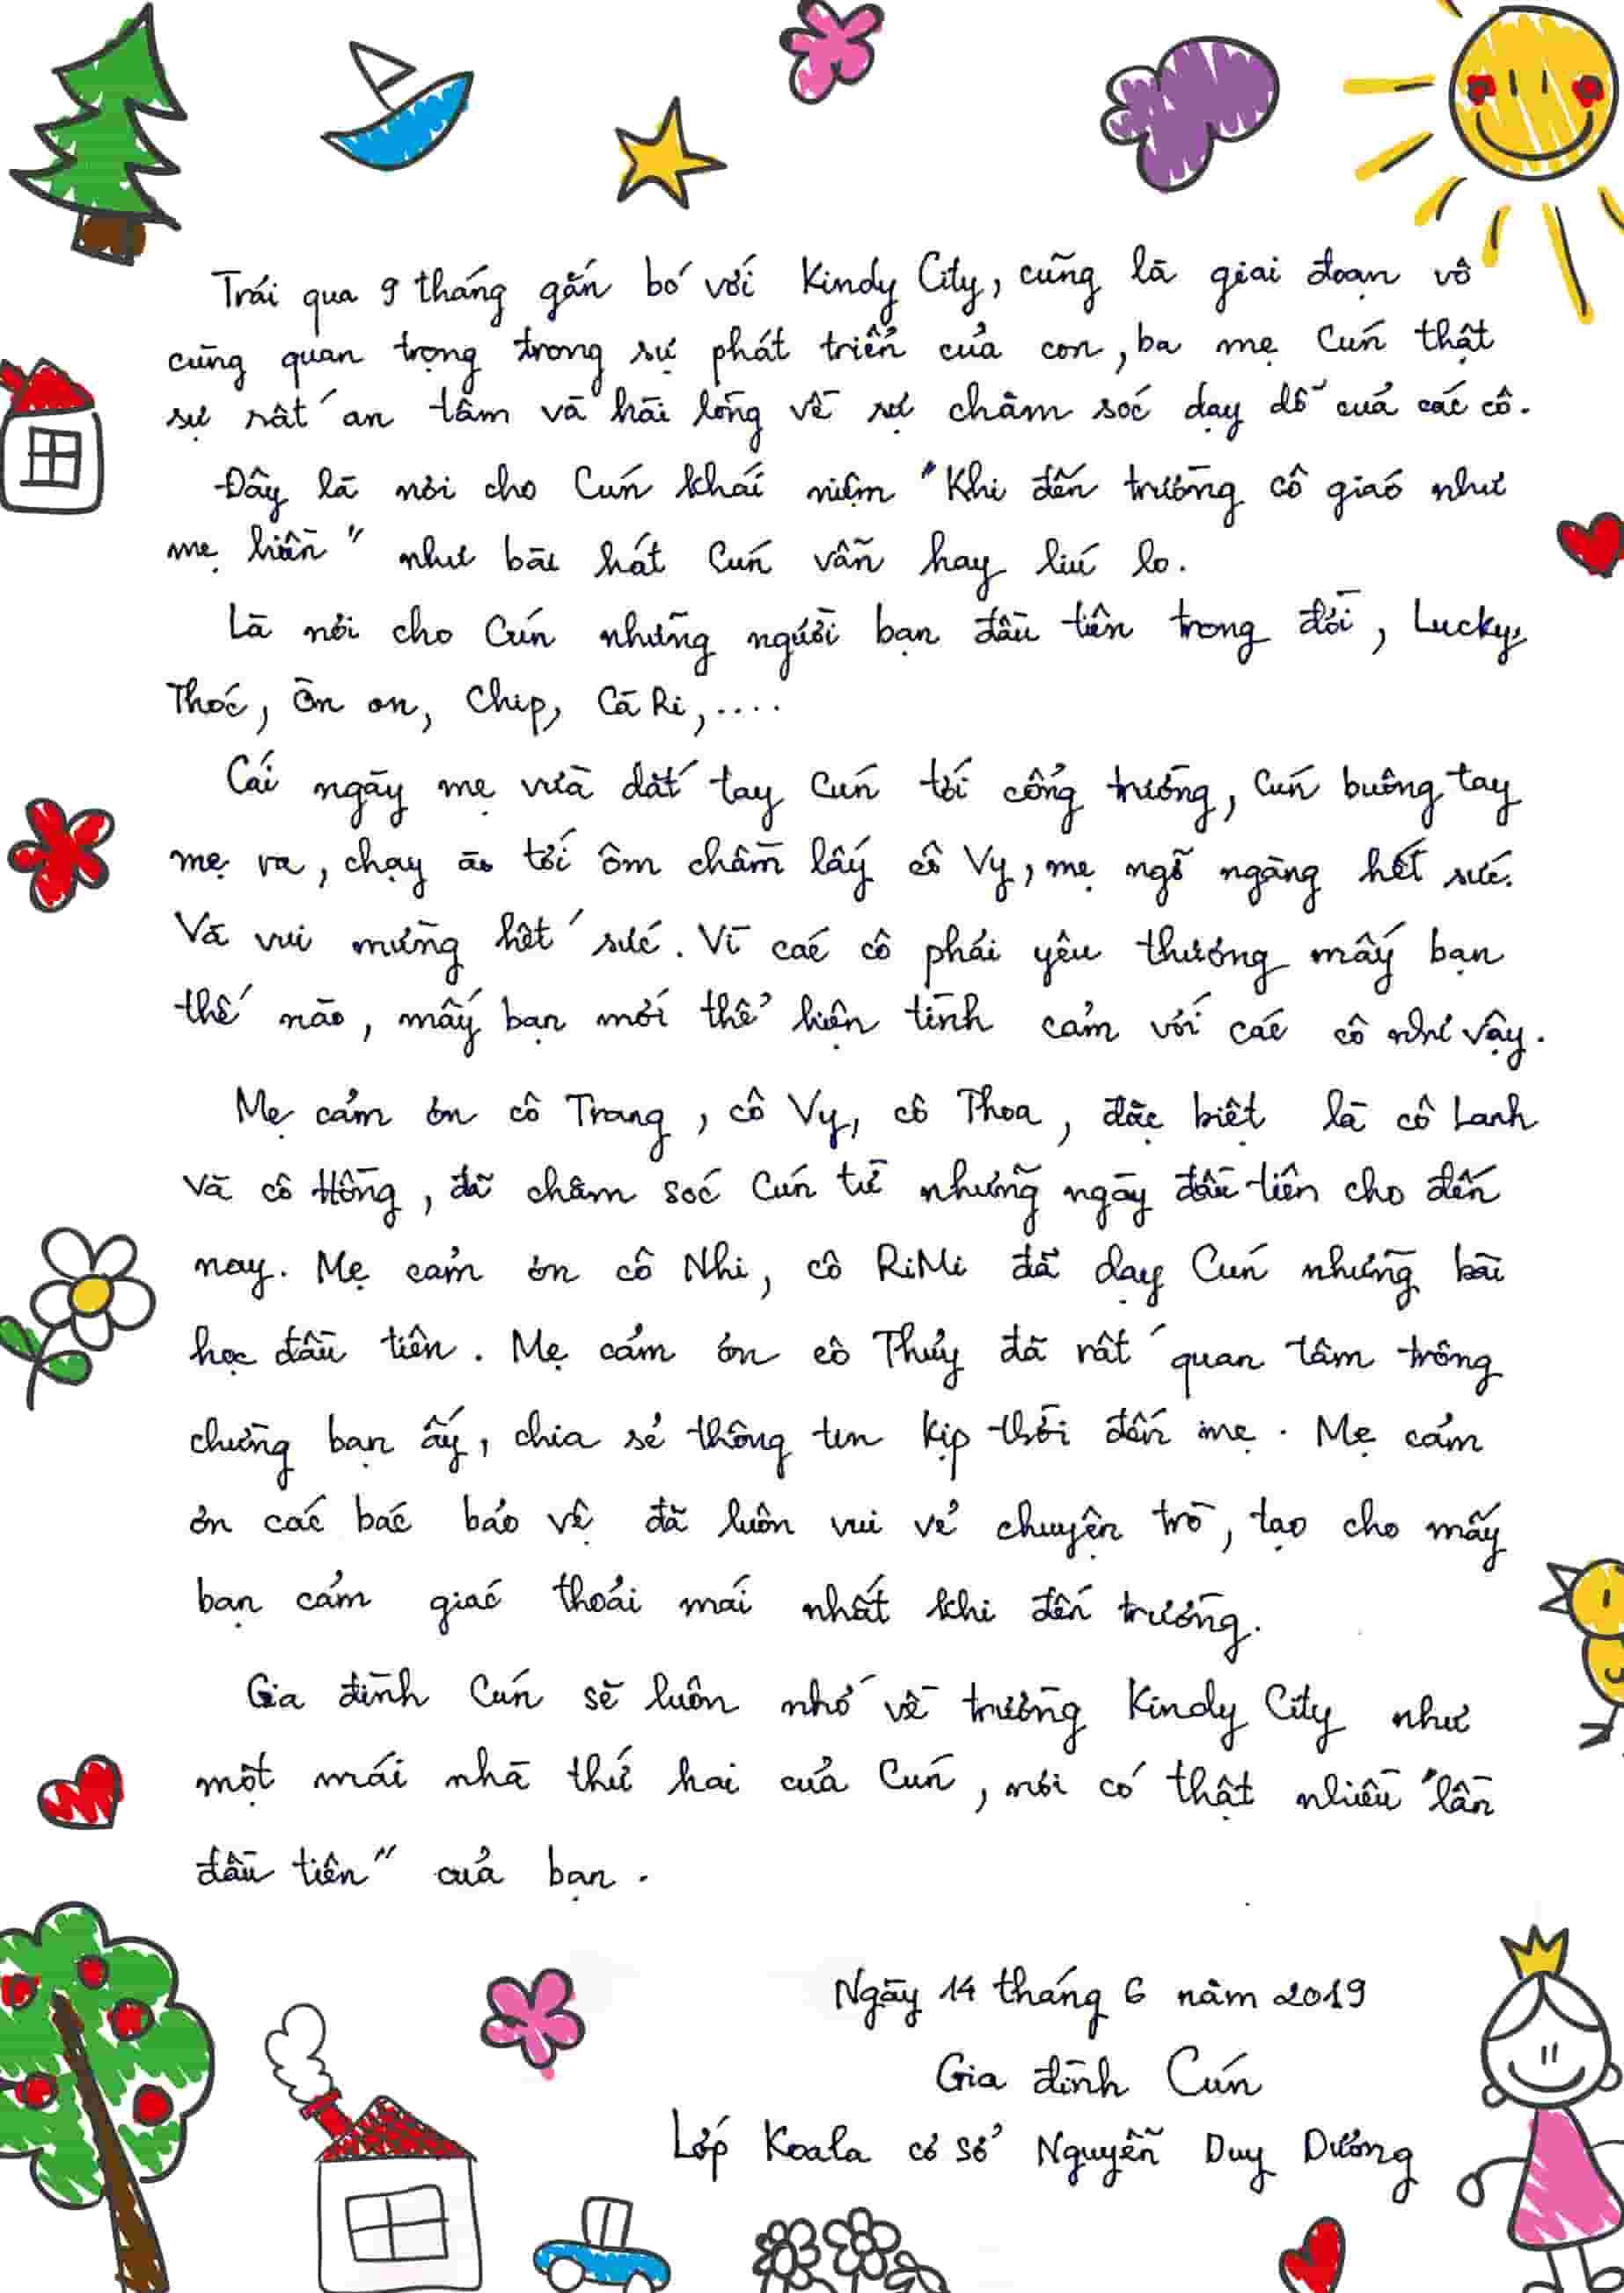 Trải qua 9 tháng gắn bó với Kindy City, cũng là giai đoạn vô
cùng quan trọng trong sự phát triển của con, ba mẹ Cún thật
sự rất an tâm và hài lòng về sự chăm sóc dạy dỗ của các cô.
Đây là nơi cho Cún khái niệm "Khi đến trường cô giáo như
mẹ hiền" như bài hát Cún vẫn hay líu lo.
Là nơi cho Cún những người bạn đầu tiên trong đời, Lucky,
Thóc, Ồn on, Chip, Cà Ri,....
Cái ngày mẹ vừa dắt tay Cún tới cổng trường, Cún buông tay
mẹ ra, chạy ào tới ôm chầm lấy cô Vy, mẹ ngỡ ngàng hết sức.
Và vui mừng hết sức. Vì các cô phải yêu thương mấy bạn
thế nào, mấy bạn mới thể hiện tình cảm với các cô như vậy.
Mẹ cảm ơn cô Trang, cô Vy, cô Thoa, đặc biệt là cô Lanh
và cô Hồng, đã chăm sóc Cún từ những ngày đầu tiên cho đến
nay. Mẹ cảm ơn cô Nhi, cô RiMi đã dạy Cún những bài
học đầu tiên. Mẹ cảm ơn cô Thủy đã rất quan tâm trông
chừng bạn ấy, chia sẻ thông tin kịp thời đến mẹ. Mẹ cảm
ơn các bác bảo vệ đã luôn vui vẻ chuyện trò, tạo cho mấy
bạn cảm giác thoải mái nhất khi đến trường.
Gia đình Cún sẽ luôn nhớ về trường Kindy City như
một mái nhà thứ hai của Cún, nơi có thật nhiều "lần
đầu tiên" của bạn.
Ngày 14 tháng 6 năm 2019
Gia đình Cún
Lớp Koala cơ sở Nguyễn Duy Dương